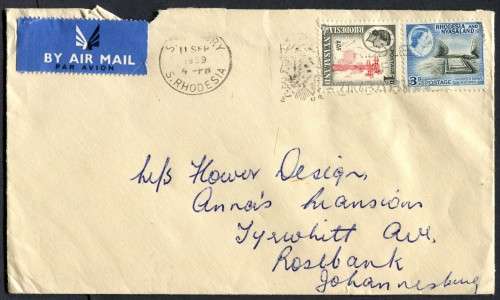 BY AIR MAIL
PAR AVION
11 SEP
1959
4 - PM
S. RHODESIA
RHODESIA & NYASALAND
1D
RHODESIA AND
NYASALAND
3D
POSTAGE
M/s Flower Design,
Anna's Mansions
Tyrwhitt Ave.
Rosebank
Johannesburg